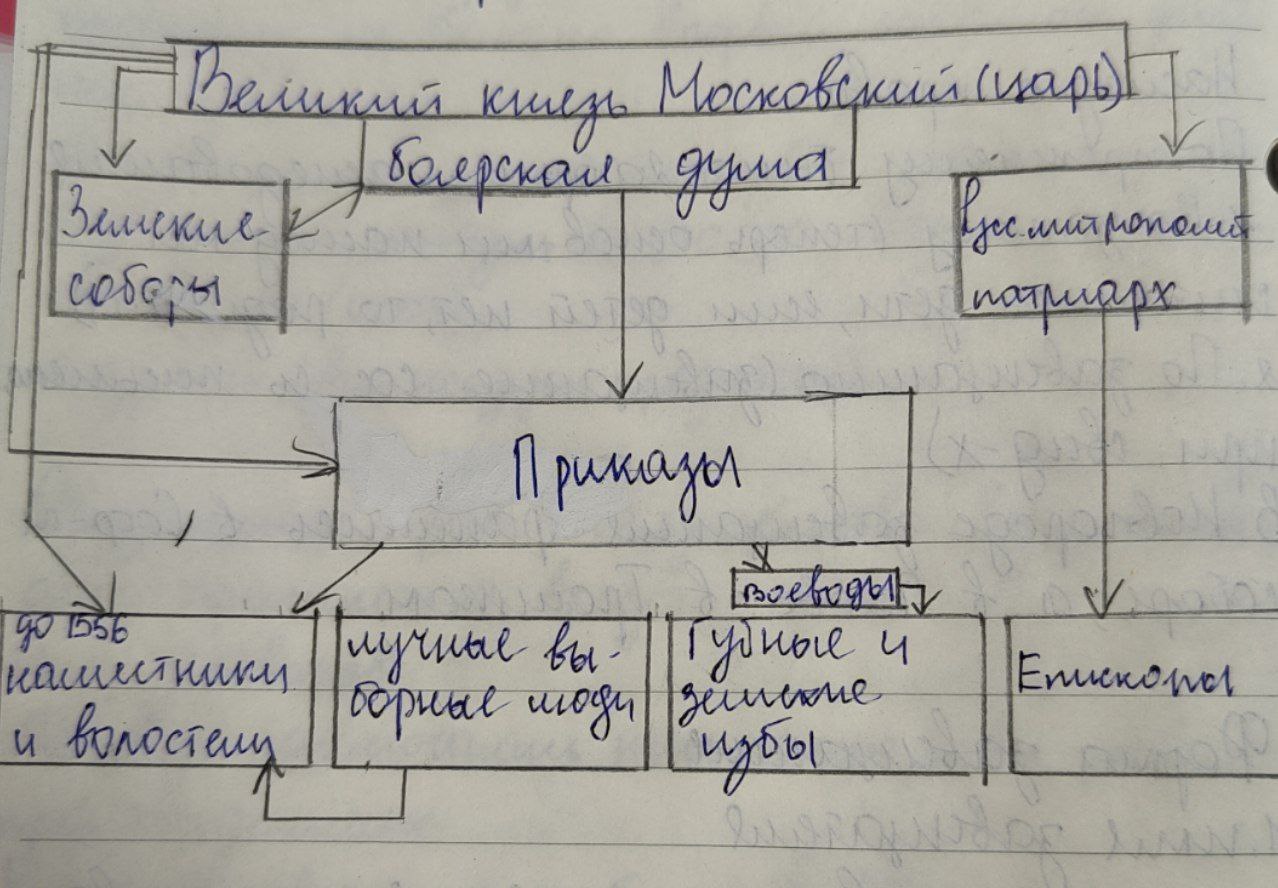 Великий князь Московский (царь)
боярская дума
Земские
соборы
митрополит
патриарх
Приказы
воеводы
до 1556
наместники
и волостели
лучные вы-
борные люди
Губные и
земские
избы
Епископы